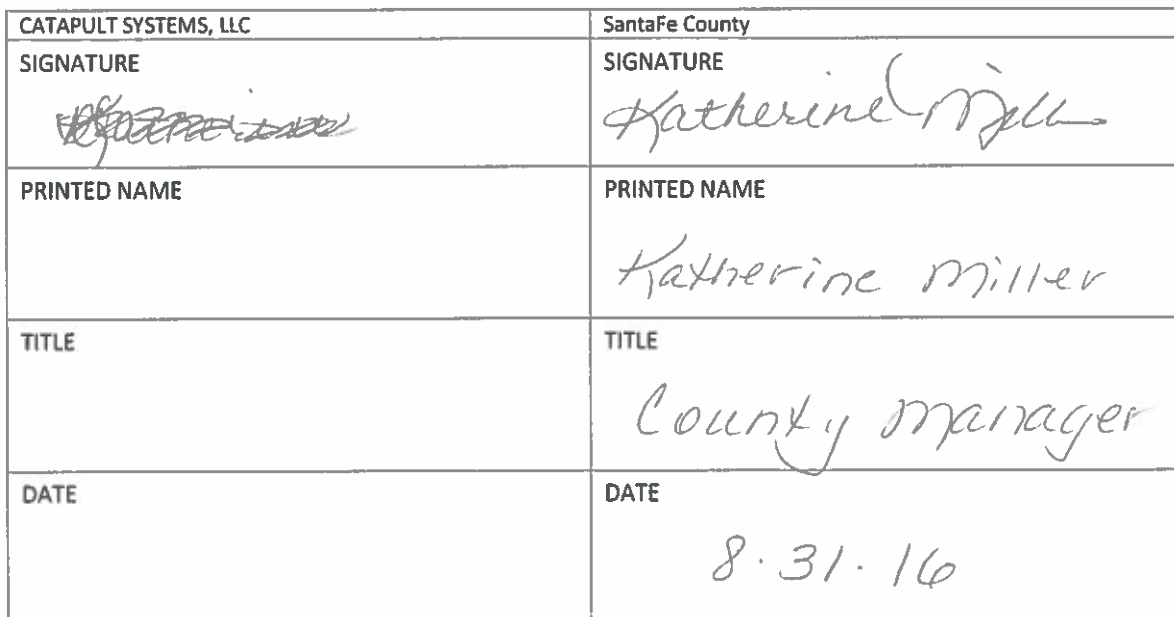 CATAPULT SYSTEMS, LLC
SantaFe County
SIGNATURE
SIGNATURE
Katherine Mill
PRINTED NAME
PRINTED NAME
Katherine Miller
TITLE
TITLE
County Manager
DATE
DATE
8.31.16